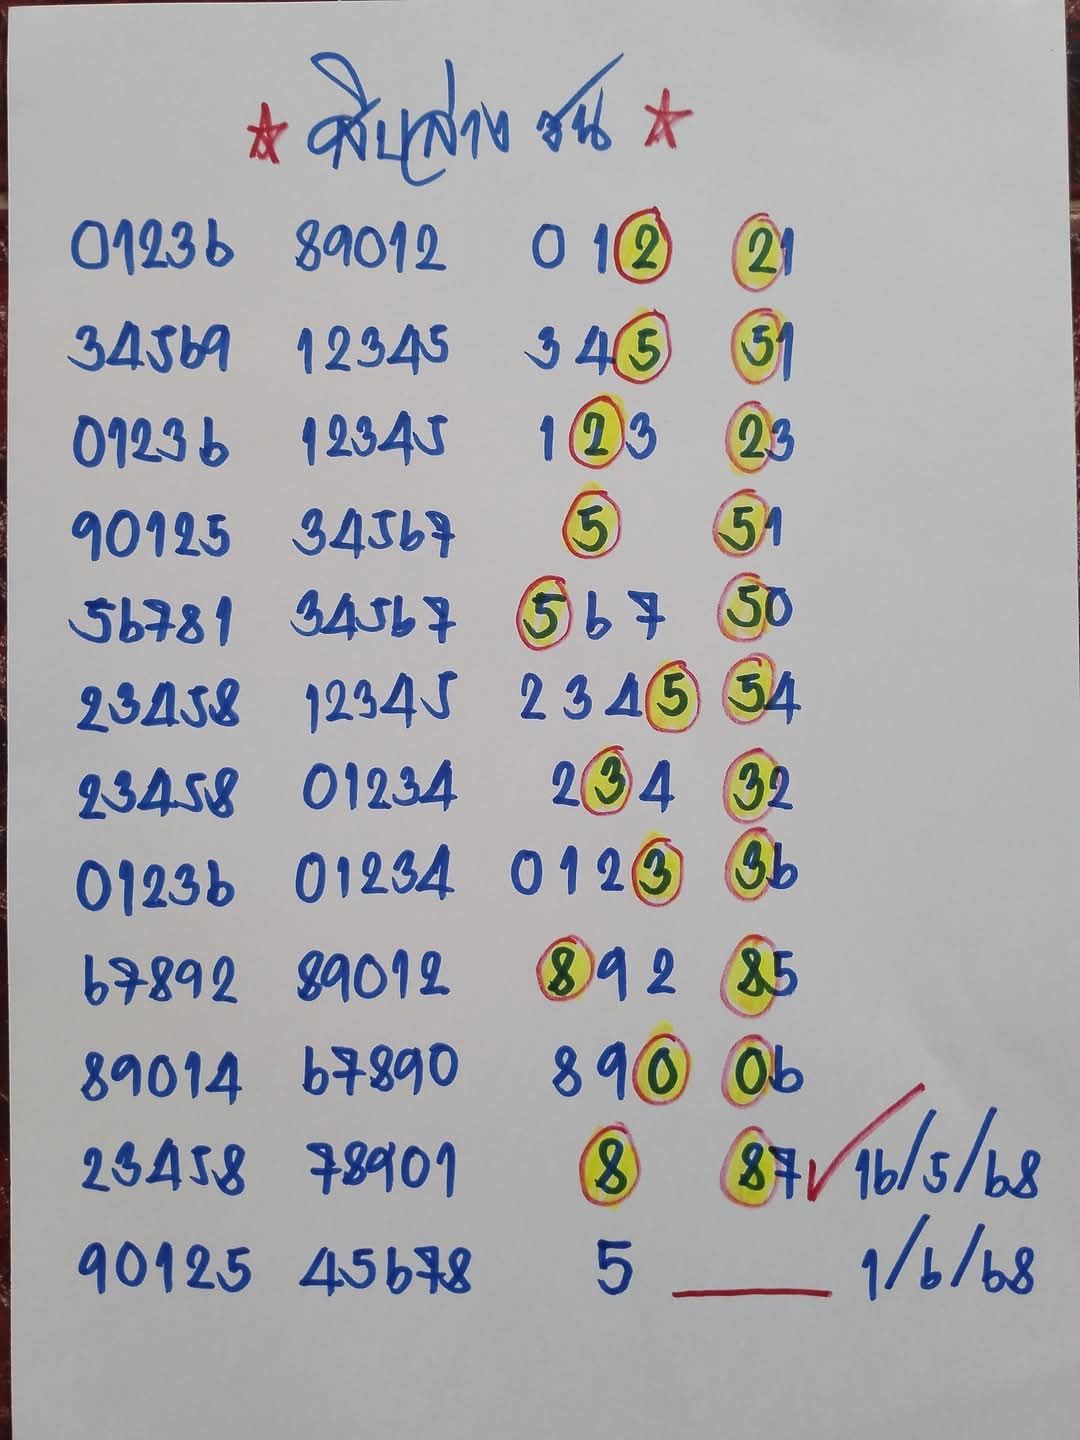 สิบล่าง ชน
01236 89012 0 1 2 21
34569 12345 3 4 5 51
01236 12345 1 2 3 23
90125 34567 5 51
56781 34567 5 6 7 50
23458 12345 2 3 4 5 54
23458 01234 2 3 4 32
01236 01234 0 1 2 3 36
67892 89012 8 9 2 85
89014 67890 8 9 0 06
23458 78901 8 87 16/5/68
90125 45678 5 ____ 1/6/68